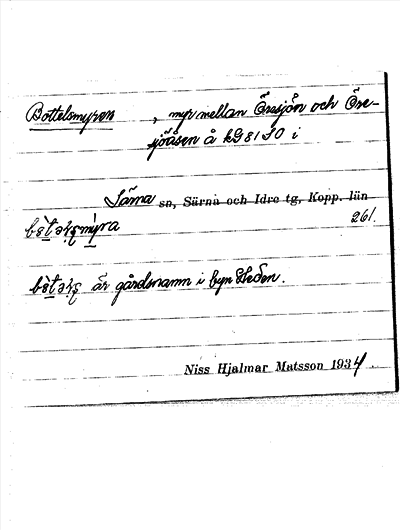 Bottelsmyren, myr mellan Öresjön och Öre-
sjöåsen å kG 81 SO i
Lima sn, Särna och Idre tg, Kopp. län
261.
är gårdsnamn i byn Heden.
Niss Hjalmar Matsson 1934.